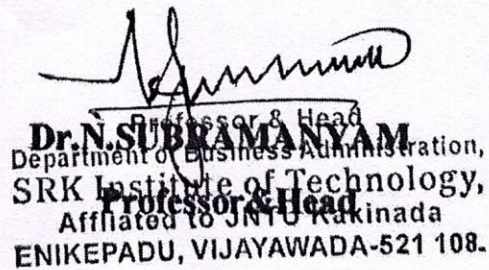 Professor & Head
Dr.N.SUBRAMANYAM
Department of Business Administration,
SRK Institute of Technology,
Professor & Head
Affliated to JNTU Kakinada
ENIKEPADU, VIJAYAWADA-521 108.